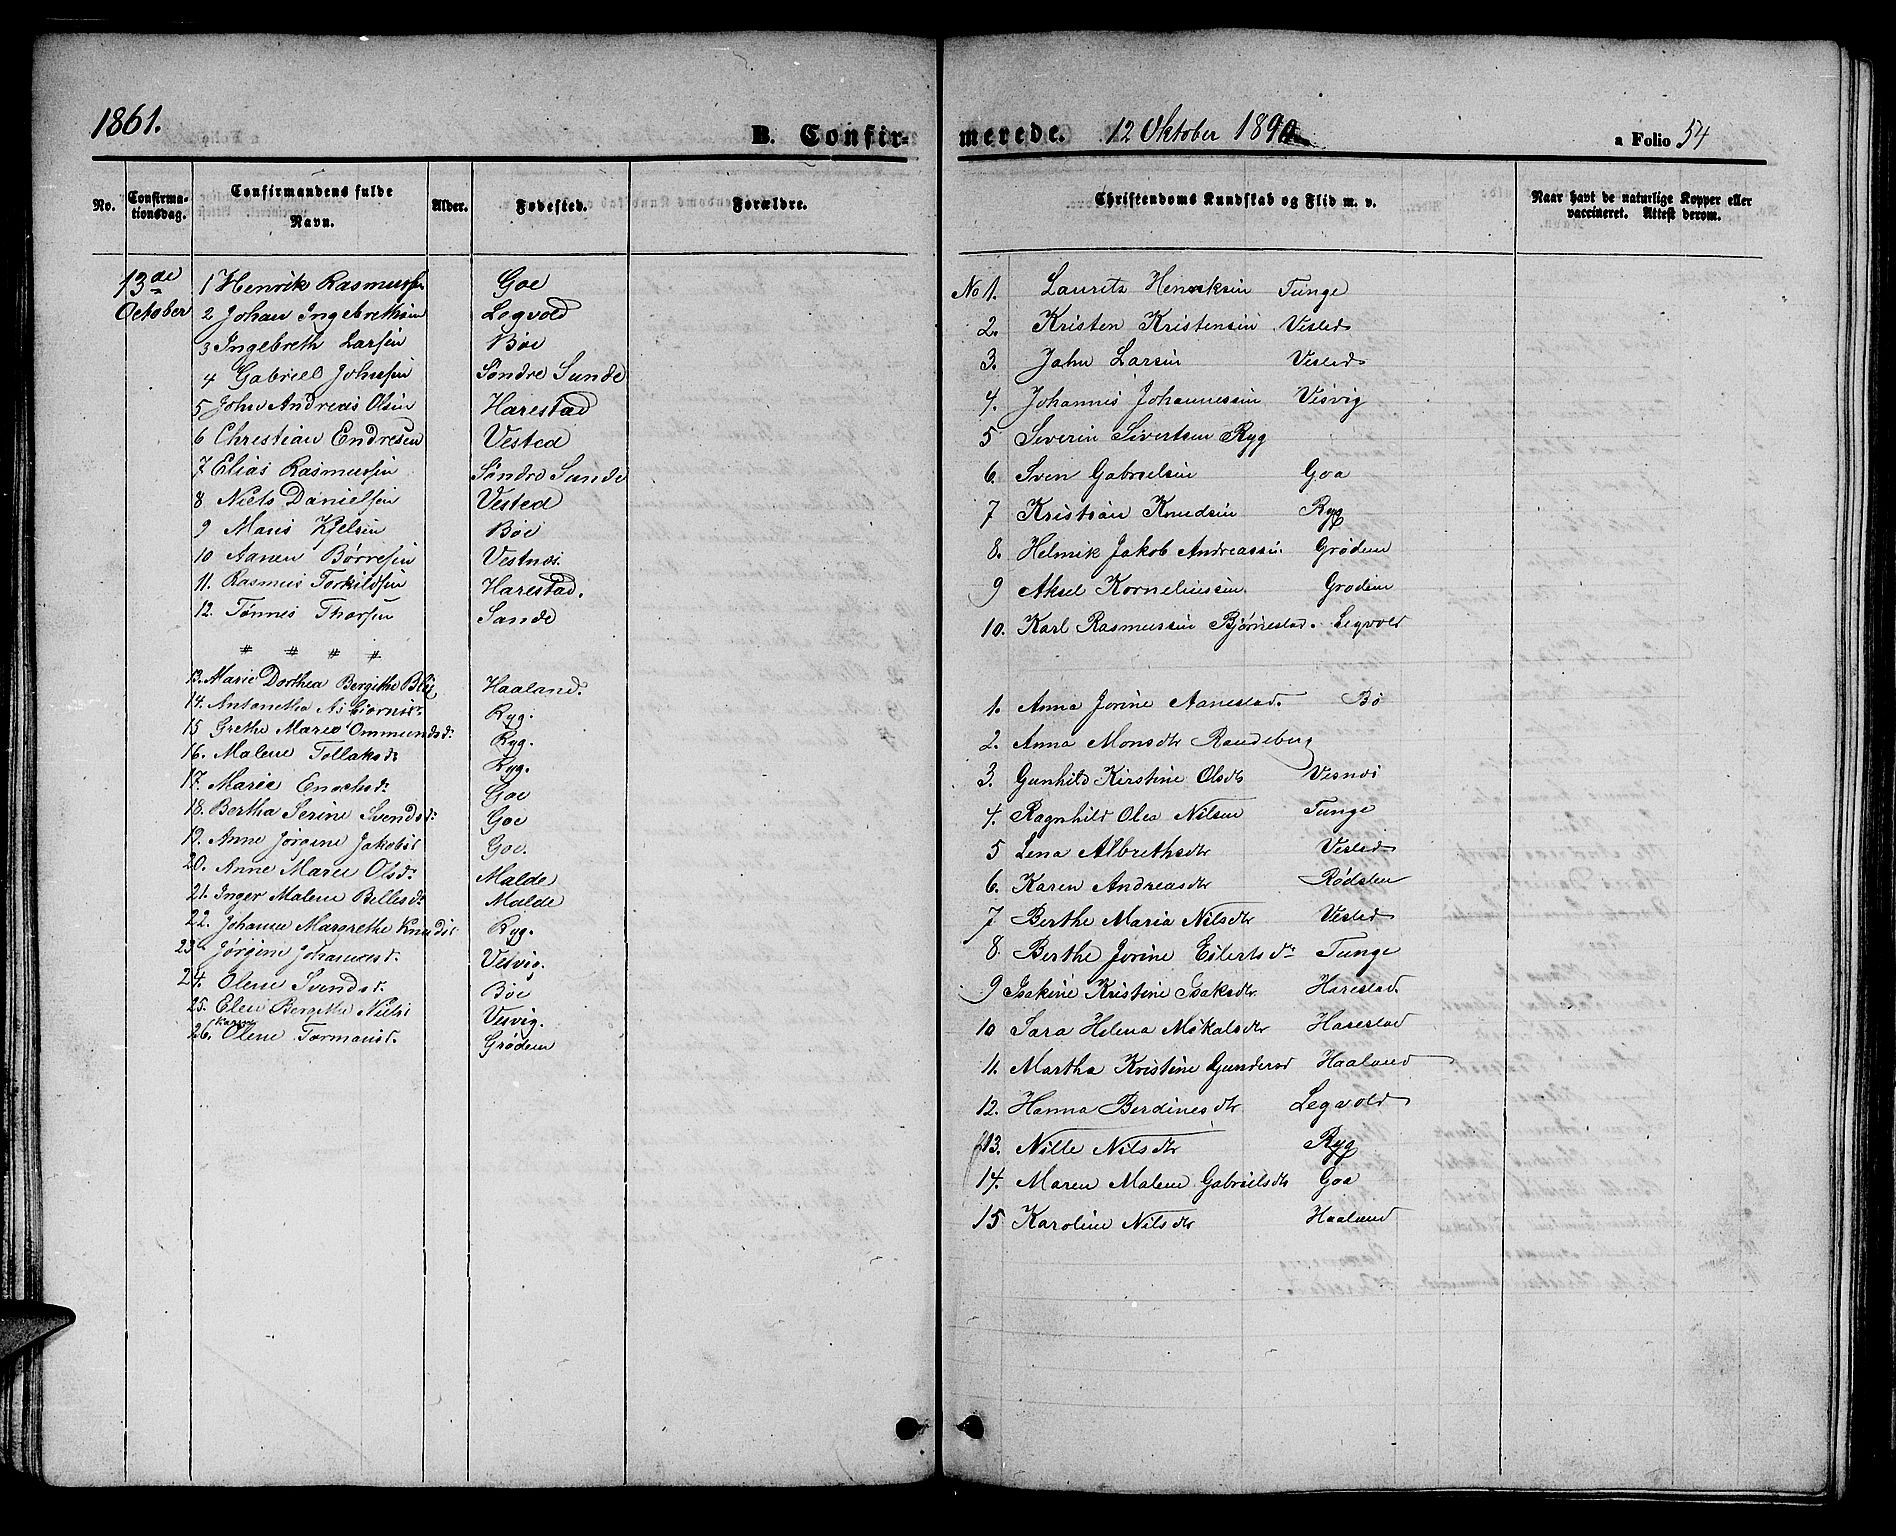 1861.
B. Confir-
No.
Confirma-
tionsdag.
Confirmandens fulde
Navn.
Alder.
Fødested.
Forældre.
13de 1 Henrik Rasmussen Goe
October 2 Johan Ingebrethsen Legvold
3 Ingebreth Larsen Böe
4 Gabriel Johnsen Søndre Sunde
5 John Andreas Olsen Harestad
6 Christian Endresen Vested
7 Elias Rasmussen Søndre Sunde
8 Niels Danielsen Vested
9 Mons Kjelsen Böe
10 Aanen Børresen Vestnæs.
11. Rasmus Torkildsen Harestad.
12. Tønnes Thorsen Sande
〃 〃 〃 〃
13. Marie Dorthea Bergithe Haaland.
14. Antonetha Asbiørnsd. Ryg.
15 Grethe Marie Ommundsd. Ryg.
16. Malene Tollaksd. Ryg.
17. Marie Enochsd. Goe
18. Bertha Serine Svendsd. Goe
19. Anne Jørgine Jakobsd Goe.
20. Anne Marie Olsd. Malde
21. Inger Malene Bellesd. Malde
22. Johanne Margrethe Knudsd Ryg.
23 Jørgine Johannesd. Vesvig.
24. Olene Svendsd. Böe
25. Elen Bergithe Nielsd Vesvig.
26. Olene Tormansd. Grødem
merede. 12 Oktober 1890
a Folio 54
Christendoms Kundskab og Flid m. v.
Naar havt de naturlige Kopper eller
vaccineret. Attest derom.
No 1. Lauritz Henriksen Tunge
2. Kristen Kristensen Vested
3. John Larsen Vested
4. Johannes Johannessen Visvig
5 Severin Sivertsen Ryg
6. Sven Gabrielsen Goa
7 Kristian Knudsen Ryg
8. Helmik Jakob Andreassen Grødem
9 Aksel Korneliussen Grødem
10. Karl Rasmussen Bjørnestad. Legvold
1. Anna Jorine Aanestad. Bö
2. Anna Monsdtr Randeberg
3. Gunhild Kirstine Olsdtr Vesnes
4. Ragnhild Olea Nilsen Tunge
5 Lena Albrethsdtr Vested
6. Karen Andreasdtr Rødsten
7 Berthe Maria Nilsdtr Vested
8. Berthe Jorine Eilertsdr Tunge
9 Isakine Kristine Isaksdtr. Harestad.
10 Sara Helena Mikalsdtr Harestad
11. Martha Kristine Gundersd Haaland
12. Hanna Berdinesdtr Legvold
13. Nille Nilsdtr Ryg
14. Maren Malene Gabrielsdtr Goa
15 Karoline Nilsdtr Haaland